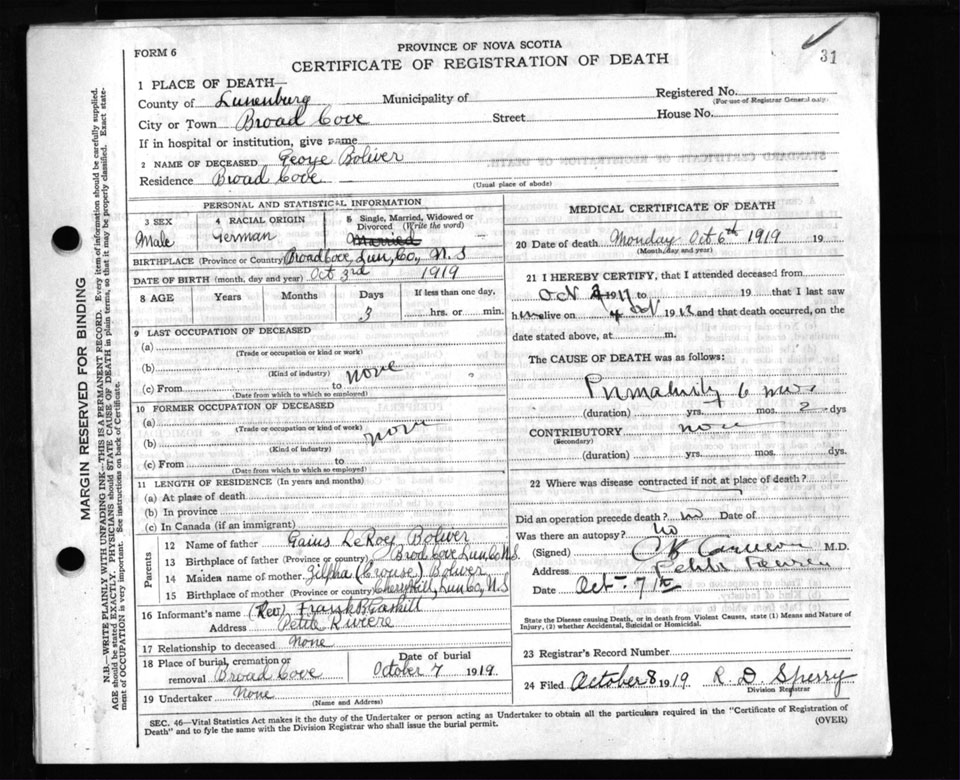 31
FORM 6
PROVINCE OF NOVA SCOTIA
CERTIFICATE OF REGISTRATION OF DEATH
1 PLACE OF DEATH—
County of Lunenburg Municipality of
Registered No.
(For use of Registrar General only.
City or Town Broad Cove Street House No.
If in hospital or institution, give name
2 NAME OF DECEASED George Boliver
Residence Broad Cove
(Usual place of abode)
PERSONAL AND STATISTICAL INFORMATION
3 SEX 4 RACIAL ORIGIN 5 Single, Married, Widowed or Divorced (Write the word)
Male German Married —
BIRTHPLACE (Province or Country) Broad Cove, Lun, Co, N.S
DATE OF BIRTH (month, day and year) Oct 3rd 1919
8 AGE Years Months Days If less than one day,
3 hrs. or min.
9 LAST OCCUPATION OF DECEASED
(a)
(Trade or occupation or kind or work)
(b) none
(Kind of industry)
(c) From to
(Date from which to which so employed)
10 FORMER OCCUPATION OF DECEASED
(a)
(Trade or occupation or kind of work)
(b) none
(Kind of industry)
(c) From to
(Date from which to which so employed)
11 LENGTH OF RESIDENCE (In years and months)
(a) At place of death
(b) In province
(c) In Canada (if an immigrant)
Parents
12 Name of father Gaius LeRoy Boliver
13 Birthplace of father (Province or country) Brod Cove Lun Co N.S
14 Maiden name of mother Zilpha (Crouse) Boliver
15 Birthplace of mother (Province or country) Cherry Hill, Lun Co, N.S
16 Informant's name (Rev) Frank Gaskill
Address Petite Riviere
17 Relationship to deceased None
18 Place of burial, cremation or removal Broad Cove
Date of burial
October 7 1919
19 Undertaker None
(Name and Address)
MEDICAL CERTIFICATE OF DEATH
20 Date of death Monday Oct 6th 1919 19
(Month, day and year)
21 I HEREBY CERTIFY, that I attended deceased from
19 to 19 that I last saw
h alive on 19 and that death occurred, on the
date stated above, at m.
The CAUSE OF DEATH was as follows:
Prematurity 6
(duration) yrs. mos. 2 dys
CONTRIBUTORY none
(Secondary)
(duration) yrs. mos. dys.
22 Where was disease contracted if not at place of death?
Did an operation precede death? no Date of
Was there an autopsy? No
(Signed) Cameron M.D.
Address Petite Riviere
Date Oct 7th
State the Disease causing Death, or in death from Violent Causes, state (1) Means and Nature of Injury, (2) whether Accidental, Suicidal or Homicidal.
23 Registrar's Record Number
24 Filed October 8 1919 R. D. Sperry
Division Registrar
SEC. 46—Vital Statistics Act makes it the duty of the Undertaker or person acting as Undertaker to obtain all the particulars required in the "Certificate of Registration of
Death" and to fyle the same with the Division Registrar who shall issue the burial permit.
(OVER)
MARGIN RESERVED FOR BINDING
N.B.—WRITE PLAINLY WITH UNFADING INK—THIS IS A PERMANENT RECORD. Every item of information should be carefully supplied.
AGE should be stated EXACTLY. PHYSICIANS should STATE CAUSE OF DEATH in plain terms, so that it may be properly classified. Exact state-
ment of OCCUPATION is very important. See instructions on back of Certificate.